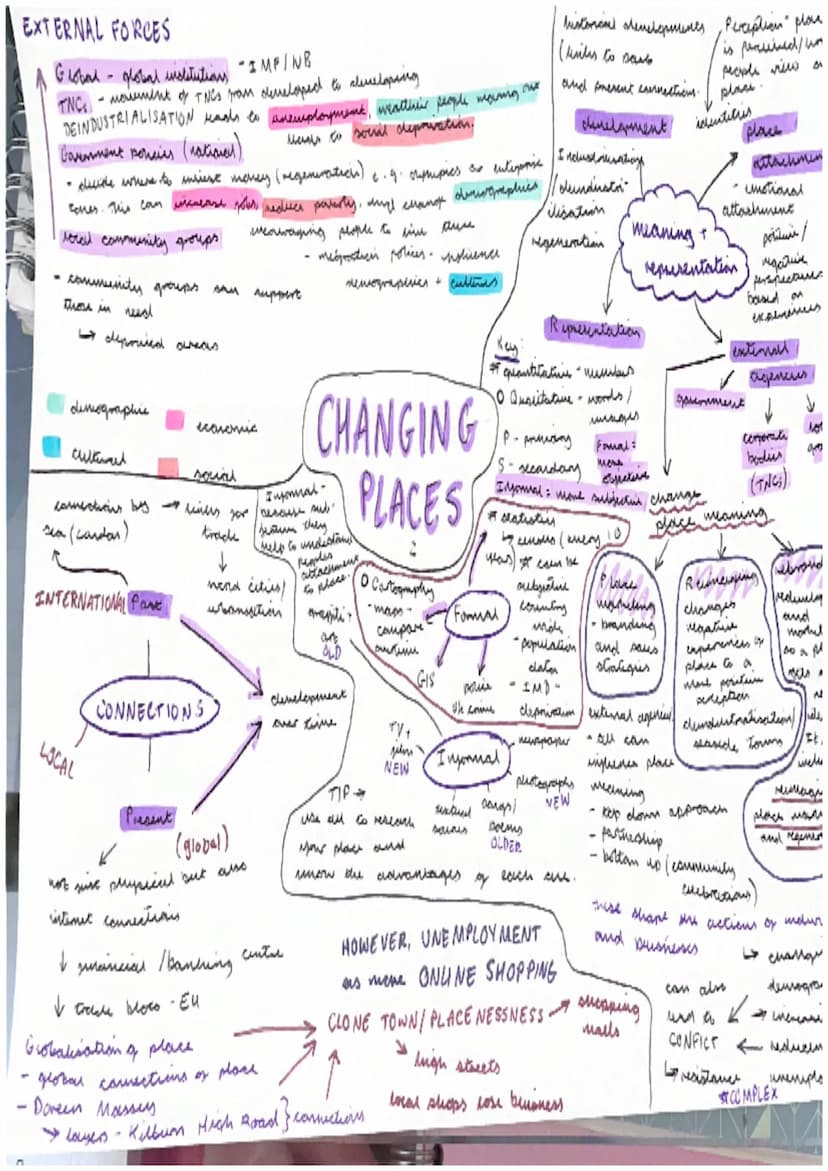 EXTERNAL FORCES
Global - global institutions - IMF/WB
TNCs - movement of TNCs from developed to developing
DEINDUSTRIALISATION leads to unemployment, wealthier people moving out
leads to social deprivation.
Government policies (national)
- decide where to invest money (regeneration) e.g. olympics or enterprise
zones. This can increase jobs, reduce poverty, and change demographics
encouraging people to live there
local community groups
- migration policies - influence
demographics + cultures
- community groups can support
those in need
↳ deprived areas
demographic
economic
cultural
social
CHANGING
PLACES
:
historical developments
(links to past
and present connections.
Perception - place
is perceived/how
people view a
place.
identities
development
Industrialisation
/deindustri-
lisation
regeneration
place
attachment
- emotional
attachment
positive/
negative
perspectives
based on
experiences
meaning +
representation
Representation
Key:
* quantitative - numbers
O Qualitative - words/
images
P - primary
S - secondary
Formal =
more
objective
Informal = more subjective
external
agencies
government
corporate
bodies
(TNCs)
change
place meaning
Place
marketing
- branding
and sales
strategies
Reimaging
changes
negative
experiences of
place to a
more positive
perception
deindustrialisation/
seaside towns
rebrand
redevelop
and
market
as a pl
external agencies
- all can
influence place
meaning
- top down approach
- partnership
- bottom up (community
celebrations)
place
and regener
these shape the actions of indivi
and business
↳ change
demogra
→ increase
← reducin
unemplo
can also
lead to
CONFICT
↳ resistance
*COMPLEX
Informal -
because sub-
jective they
help to understand
peoples
attachment
to place.
graffiti +
art
OLD
* statistics
↳ census (every 10
years) * can be
subjective
counting
mode
- population
data
- IMD -
deprivation
O Cartography
- maps -
compare
overtime
Formal
GIS
police
uk crime
Informal
TV +
film
NEW
newspaper
photographs
NEW
textual
sources
songs/
poems
OLDER
TIP →
use all to research
your place and
know the advantages of each one.
connections by → links for
sea (Cardiff)
trade
↓
world cities/
urbanisation
INTERNATIONAL
Past
CONNECTIONS
LOCAL
development
over time
Present
(global)
not just physical but also
internet connections
↓ financial/banking centre
↓ trade blocs - EU
Globalisation of place
- global connections of place
- Doreen Massey
→ layers - Kilburn High Road } connections
HOWEVER, UNEMPLOYMENT
as more ONLINE SHOPPING
CLONE TOWN/PLACENESSNESS → shopping
malls
↘ high streets
local shops lose business